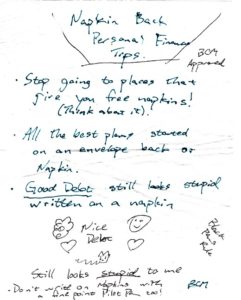 Napkin Back
Personal Finance
Tips.
BCM
Approved
• Stop going to places that
give you free napkins!
(Think about it).
• All the best plans started
on an envelope back or
Napkin.
• Good Debt still looks stupid
written on a napkin
Nice
Debt
Black
Pens
Rule
Still looks stupid to me
• Don't write on Napkins with
a fine point Pilot Pen too!
BCM